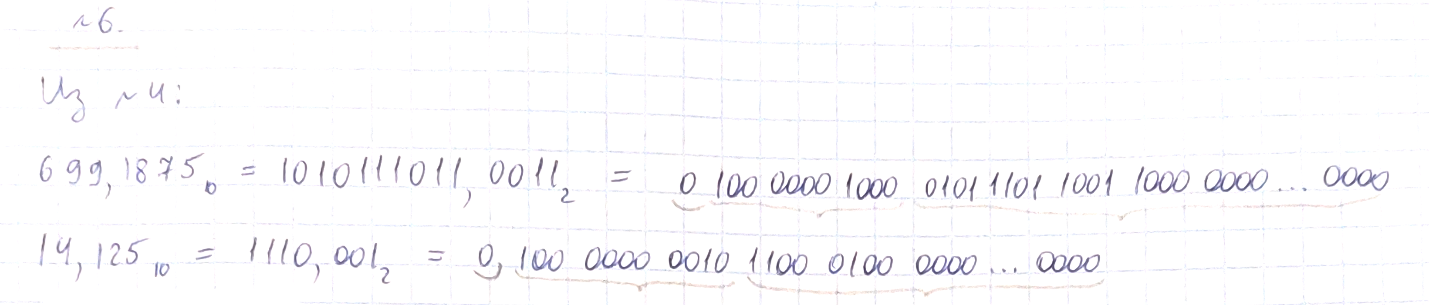 №6.
Из №4:
699,1875₁₀ = 1010111011,0011₂ = 0 100 0000 1000 0101 1101 1001 1000 0000... 0000
14,125₁₀ = 1110,001₂ = 0, 100 0000 0010 1100 0100 0000 ... 0000